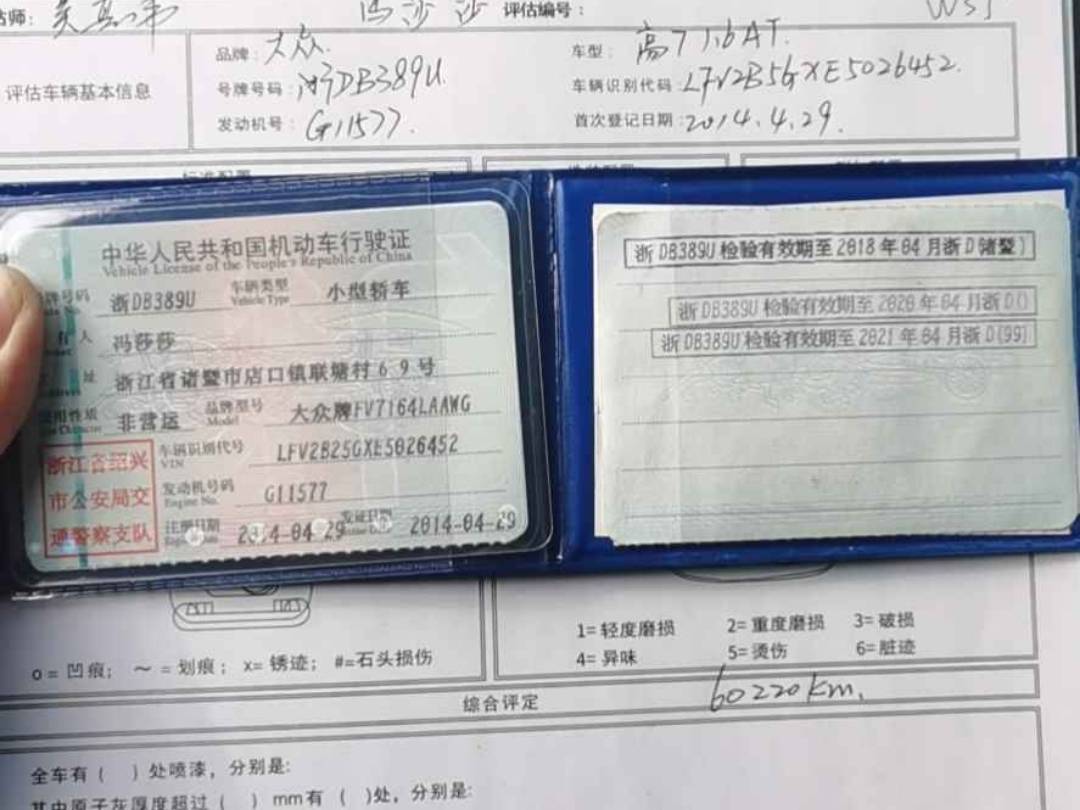 估师: 评估编号:
品牌: 大众. 车型: 高7 1.6AT.
评估车辆基本信息
号牌号码: 浙DB389U. 车辆识别代码: LFV2B5GXE5026452.
发动机号: G11577. 首次登记日期: 2014.4.29.
中华人民共和国机动车行驶证
Vehicle License of the People's Republic of China
牌号码 浙DB389U 车辆类型 小型轿车
Vehicle Type
有人 冯莎莎
址 浙江省诸暨市店口镇联塘村69号
用性质 非营运 品牌型号 大众牌FV7164LAAWG
Use Character Model
浙江省绍兴
市公安局交
通警察支队
车辆识别代号 LFV2B25GXE5026452
VIN
发动机号码 G11577
Engine No.
注册日期 2014-04-29 发证日期 2014-04-29
浙DB389U检验有效期至2018年04月浙D(诸暨)
浙DB389U检验有效期至2020年04月浙D()
浙DB389U检验有效期至2021年04月浙D(99)
o=凹痕; ～=划痕; x=锈迹; #=石头损伤
1=轻度磨损 2=重度磨损 3=破损
4=异味 5=烫伤 6=脏迹
综合评定 60220km.
全车有( )处喷漆,分别是:
其中原子灰厚度超过( )mm有( )处,分别是: